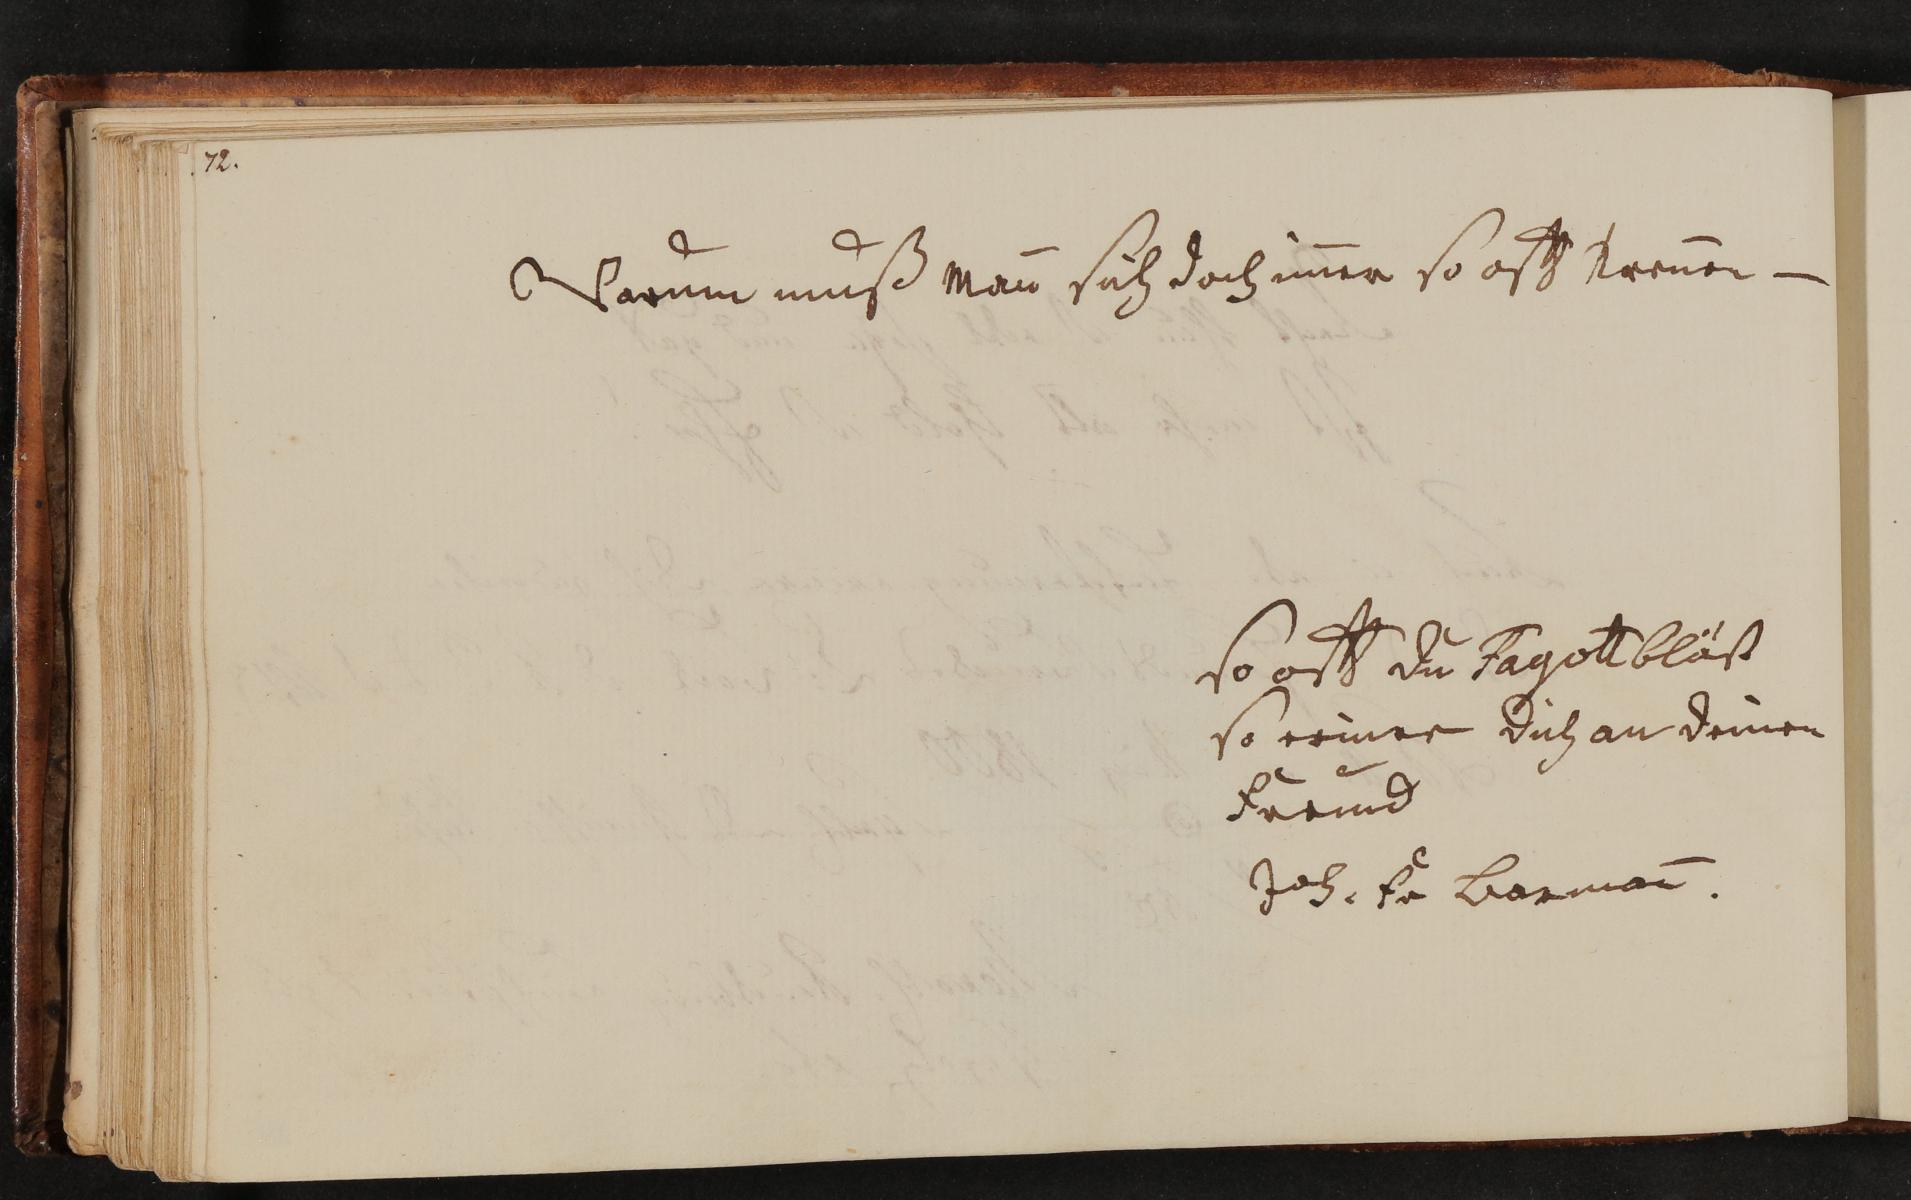 72.
Warum muß man̄ sich doch im̄er so offt tren̄en —
so offt du Fagott bläst
so erinner dich an deinen
Freund
Joh. Fr Barman̄.